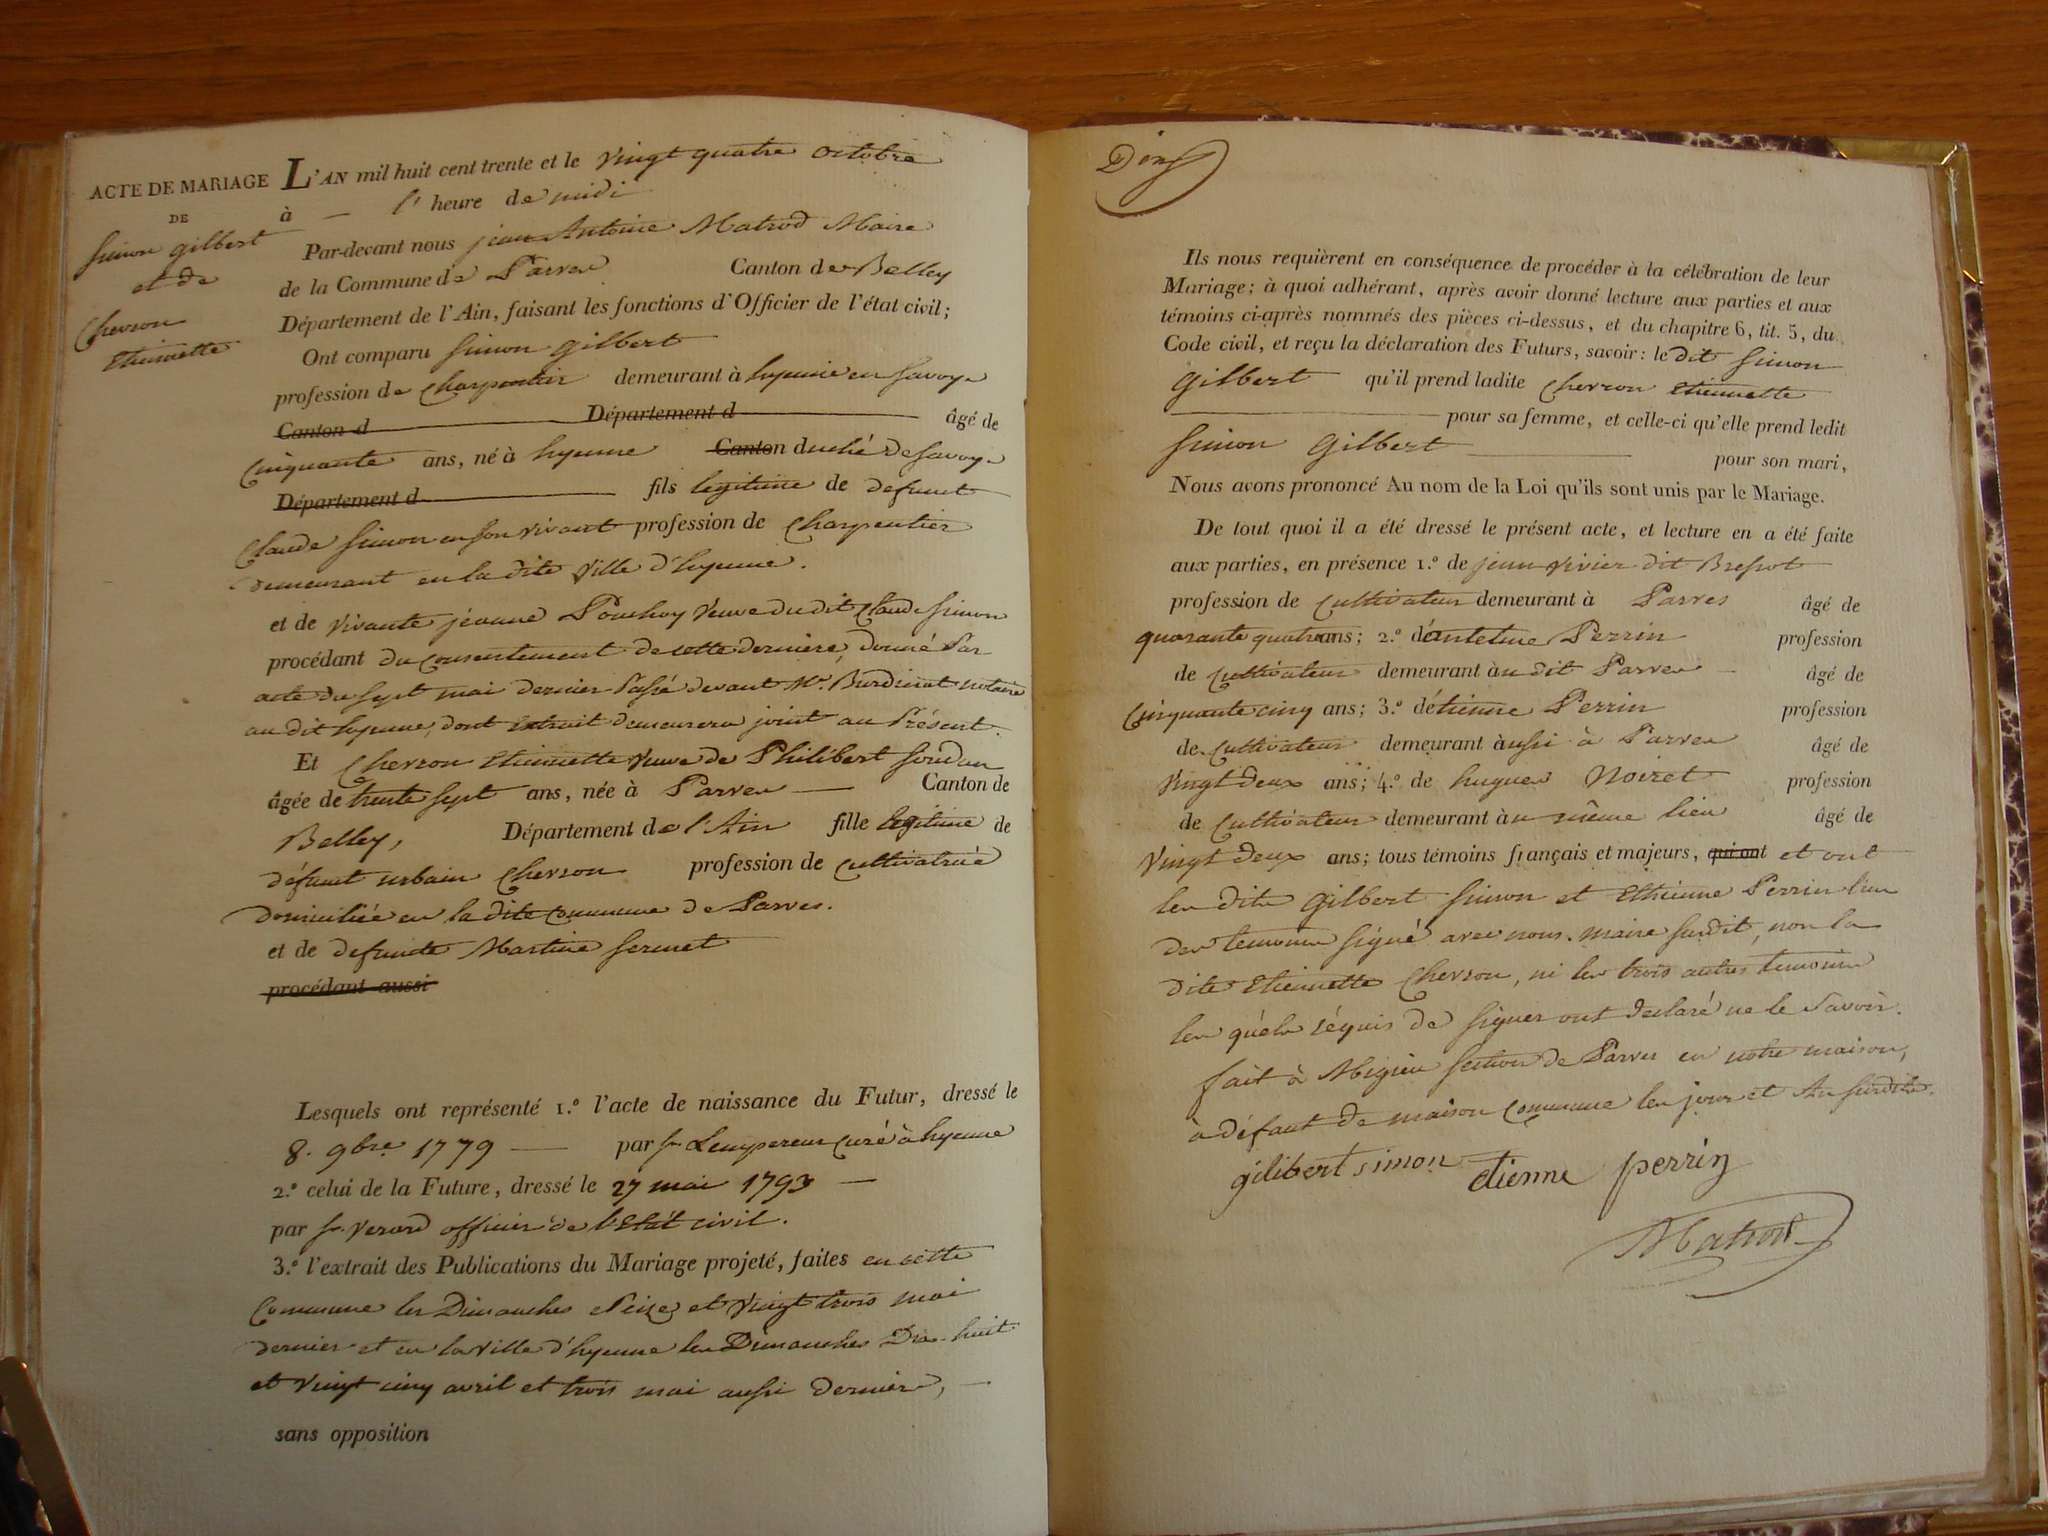 ACTE DE MARIAGE
DE
Simon gilbert
et de
Chevron
Etiennette
L'AN mil huit cent trente et le vingt quatre octobre
à — l'heure de midi
Par-devant nous jean Antoine Matrod Maire
de la Commune de Parves Canton de Belley
Département de l'Ain, faisant les fonctions d'Officier de l'état civil;
Ont comparu Simon gilbert
profession de Charpentier demeurant à hyenne en Savoye
Canton d Département d âgé de
Cinquante ans, né à hyenne Canton duché de Savoye
Département d fils legitime de defunt
Claude Simon en son vivant profession de Charpentier
demeurant en la dite ville d'hyenne.
et de vivante jeanne Pouchoy veuve du dit Claude Simon
procédant du consentement de cette derniere, donné Par
acte du sept mai dernier Passé devant Me. notaire
au dit hyenne, dont Extrait demeurera joint au Présent.
Et Chevron Etiennette veuve de Philibert Soudan
âgée de trente sept ans, née à Parves — Canton de
Belley, Département de l'Ain fille legitime de
défunt urbain Chevron profession de Cultivatrice
domiciliée en la dite commune de Parves.
et de defunte Martine Sermet
procédant aussi
Lesquels ont représenté 1.º l'acte de naissance du Futur, dressé le
8. 9bre. 1779 — par sr. Lempereur curé à hyenne
2.º celui de la Future, dressé le 27 mai 1793 —
par sr. Verard officier de l'Etât civil.
3.º l'extrait des Publications du Mariage projeté, faites en cette
Commune les Dimanches Seize et vingt trois mai
dernier et en la ville d'hyenne les Dimanches Dix-huit
et vingt cinq avril et trois mai aussi dernier, —
sans opposition
Ils nous requièrent en conséquence de procéder à la célébration de leur
Mariage; à quoi adhérant, après avoir donné lecture aux parties et aux
témoins ci-après nommés des pièces ci-dessus, et du chapitre 6, tit. 5, du
Code civil, et reçu la déclaration des Futurs, savoir: le dit Simon
Gilbert qu'il prend ladite Chevron Etiennette
pour sa femme, et celle-ci qu'elle prend ledit
Simon Gilbert
pour son mari,
Nous avons prononcé Au nom de la Loi qu'ils sont unis par le Mariage.
De tout quoi il a été dressé le présent acte, et lecture en a été faite
aux parties, en présence 1.º de jean vivier dit Bressot
profession de Cultivateur demeurant à Parves âgé de
quarante quatre ans; 2.º d'antelme Perrin profession
de Cultivateur demeurant au dit Parves âgé de
Cinquante cinq ans; 3.º d'étienne Perrin profession
de Cultivateur demeurant aussi à Parves âgé de
vingt deux ans; 4.º de hugues Noiret profession
de Cultivateur demeurant au même lieu âgé de
vingt deux ans; tous témoins français et majeurs, qui ont et ont
les dits Gilbert Simon et Etienne Perrin l'un
des temoins signé avec nous maire susdit, non la
dite Etiennette Chevron, ni les trois autres temoins
les quels réquis de signer ont declaré ne le Savoir.
fait à Migieu section de Parves en notre maison,
à défaut de maison commune les jour et An susdits.
gilibert simon etienne perrin
Matrod